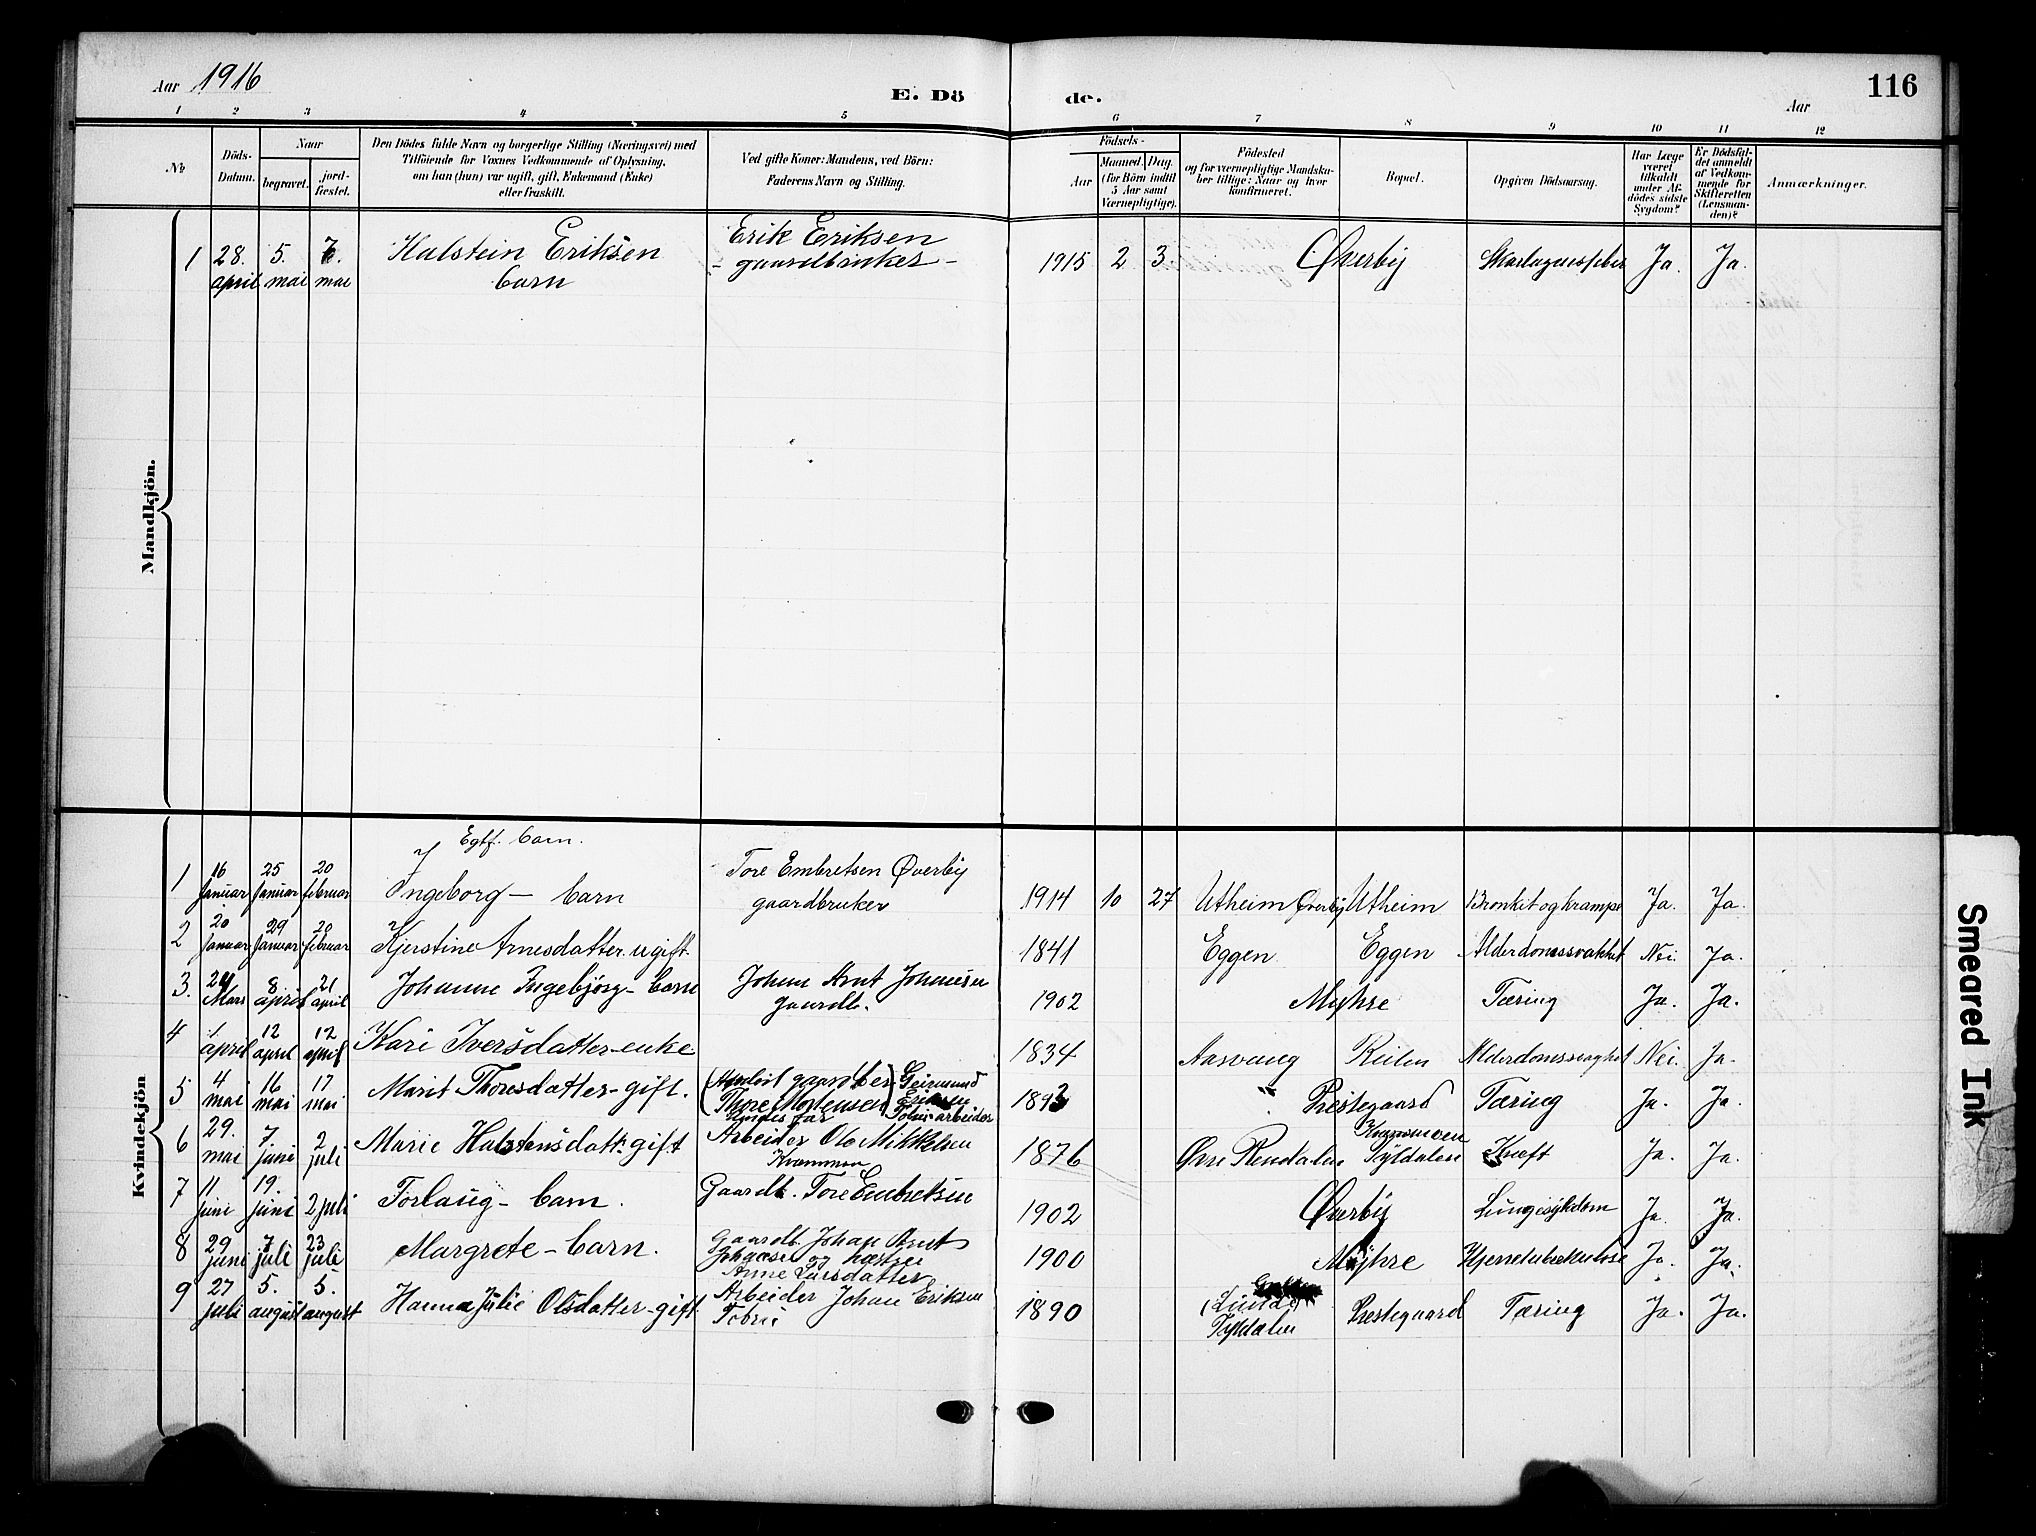 Aar 1916
E. Dö
de.
Aar
116
1 2 3 4 5 6 7 8 9 10 11 12
No
Döds-Datum.
Naar
begravet.
jord-fæstet.
Den Dödes fulde Navn og borgerlige Stilling (Næringsvei) med
Tilföiende for Voxnes Vedkommende af Oplysning,
om han (hun) var ugift, gift, Enkemand (Enke)
eller fraskilt.
Ved gifte Koner: Mandens, ved Börn:
Faderens Navn og Stilling.
Födsels-
Aar
Maaned. Dag.
(for Börn indtil
5 Aar samt
Værnepligtige).
Födested
og for værnepligtige Mandska-
ber tillige: Naar og hvor
konfirmeret.
Bopæl.
Opgiven Dödsaarsag.
Har Læge
været
tilkaldt
under Af-
dödes sidste
Sygdom?
Er Dödsfal-
det anmeldt
af Vedkom-
mende for
Skifteretten
(Lensman-
den)?
Anmærkninger.
Mandkjön.
1 28. april 5. mai 7. mai Halstein Eriksen barn Erik Eriksen - gaardbruker - 1915 2 3. Øverby Skarlagensfeber Ja. Ja.
Kvindekjön
Egtf. barn.
1 16 Januar 25 Januar 20 februar Ingeborg - barn Tore Embretsen Øverby gaardbruker 1914 10 27 Utheim Øverby Utheim Bronkit og krampe Ja. Ja.
2 20 Januar 29 Januar 20 februar Kjerstine Arnesdatter ugift 1841 Eggen Eggen Alderdomssvakhet Nei. Ja.
3. 24 Mars 8 april 21 april Johanne Ingebjörg - barn Johan Arnt Johansen gaardb. 1902 Myhre Tæring Ja. Ja.
4 1 april 12 april 12 april Kari Iversdatter - enke 1834 Aasvang Alderdomssvaghet Nei. Ja.
5 4 mai 16 mai 17 mai Marit Thoresdatter - gift. Thore Mortensen Geirmund Eriksen arbeider 1893 Prestegaard Tæring Ja. Ja.
6 29. mai 7 juni 2 juli Marie Halstensdatt. gift Arbeider Ole Mikkelsen Kvammen 1876 Øvre Rendalen Tyldalen Kræft Ja. Ja.
7 11 juni 19. juni 2 juli Torlaug - barn. Gaardb. Tore Embretsen 1902 Øverby Lungesykdom Ja. Ja.
8 29 juni 7 juli 23 juli Margrete - barn. Gaardb. Johan Arnt Johansen og hustru Anne Larsdatter 1900 Myhre Hjernetuberkulose Ja. Ja.
9 27 juli 5. august 5. august Hanna Julie Olsdatter - gift Arbeider Johan Eriksen 1890 Tyldalen Prestegaard Tæring Ja. Ja.
Smeared Ink